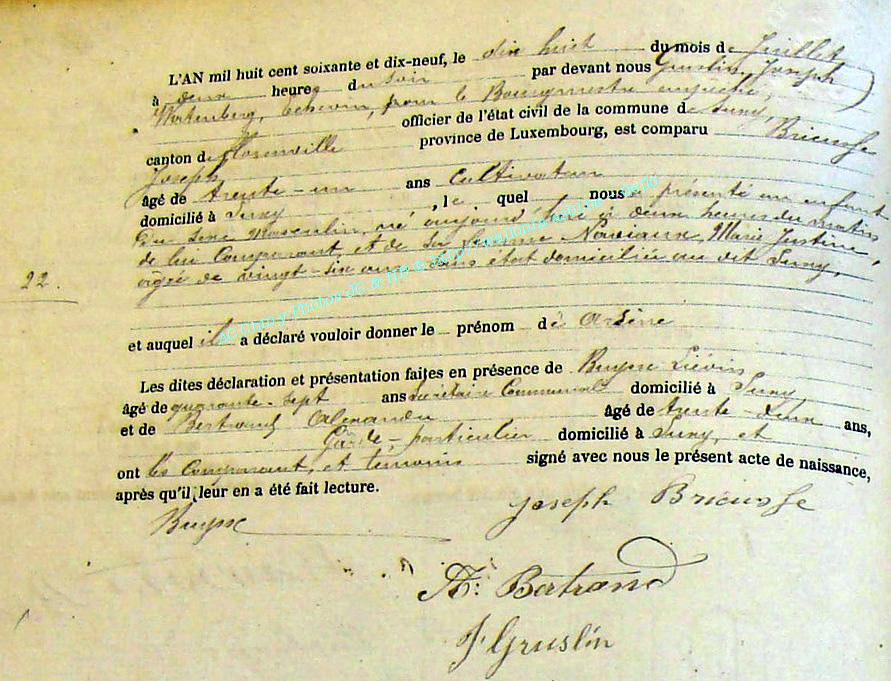 L'AN mil huit cent soixante et dix-neuf, le dix huit du mois de Juillet
à deux heures du soir par devant nous Gruslin, Joseph
échevin, pour le Bourgmestre empêché,
officier de l'état civil de la commune de Suny,
canton de Florenville province de Luxembourg, est comparu Bricusse
Joseph
âgé de trente-un ans Cultivateur
domicilié à Suny, le quel nous a présenté un enfant
du sexe masculin, né aujourd'hui à deux heures du matin
de lui comparant, et de sa femme Noviaux, Marie Justine,
agée de vingt-six ans sans état domiciliée au dit Suny,
22.
et auquel il a déclaré vouloir donner le prénom de Arsène
Les dites déclaration et présentation faites en présence de Buysse Liévin
âgé de quarante-sept ans Secrétaire Communal domicilié à Suny
et de Bertrand Alexandre âgé de trente-deux ans,
Garde-particulier domicilié à Suny, et
ont les Comparant, et témoins signé avec nous le présent acte de naissance,
après qu'il leur en a été fait lecture.
Buysse Joseph Bricusse
A: Bertrand
J Gruslin